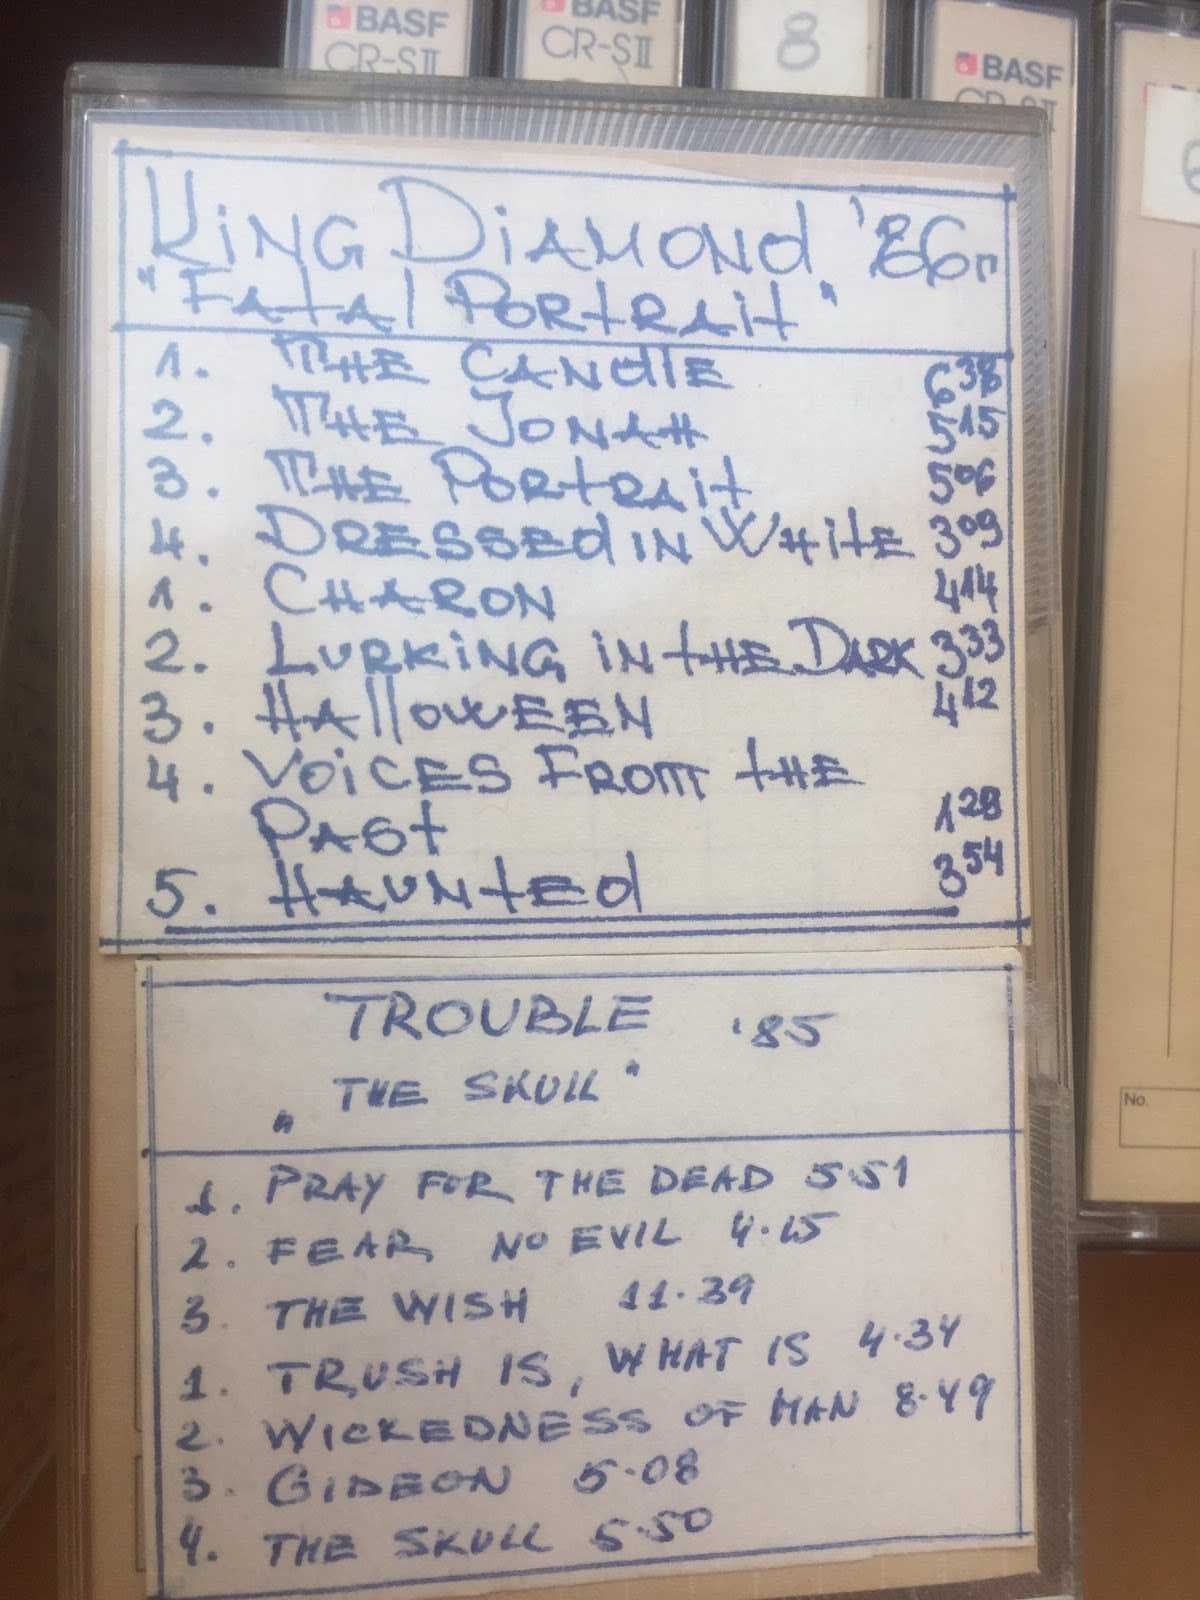 BASF
CR-SII
BASF
CR-SII
8
BASF
CR-SII
KiNG DiAMONd '86г
"FAtAl PORtRAit"
1. THE CANdlE 6 38
2. THE JONAH 5 15
3. THE PORtRAit 5 06
4. DRESSEd IN WHitE 3 09
1. CHARON 4 14
2. LURKiNG iN tHE DARK 3 33
3. HAllOWEEN 4 12
4. VOiCES FROM tHE
PASt 1 28
5. HAUNtEd 3 54
TROUBLE '85
„THE SKULL"
1. PRAY FOR THE DEAD 5.51
2. FEAR NO EVIL 4.15
3. THE WISH 11.39
1. TRUSH IS, WHAT IS 4.34
2. WICKEDNESS OF MAN 8.49
3. GIDEON 5.08
4. THE SKULL 5.50
No.